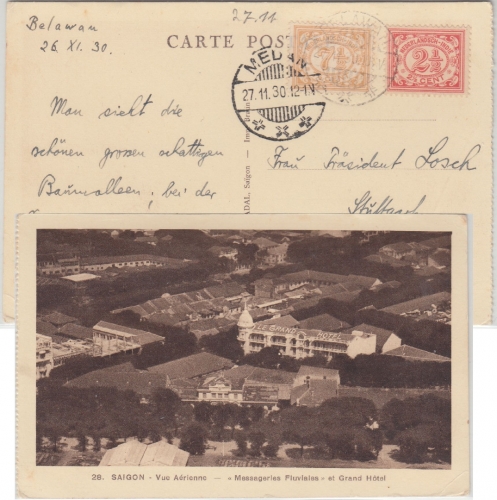 Belawan
26. XI. 30.
27.11
CARTE POST
MEDAN
27.11.30.12-1N
7½
NEDERLANDSCH-INDIE
2½
CENT
Man sieht die
schönen grossen schattigen
Baumalleen, bei der
NADAL, Saigon
Frau Präsident Losch
Stuttgart
LE GRAND HOTEL
28. SAIGON - Vue Aérienne — « Messageries Fluviales » et Grand Hôtel